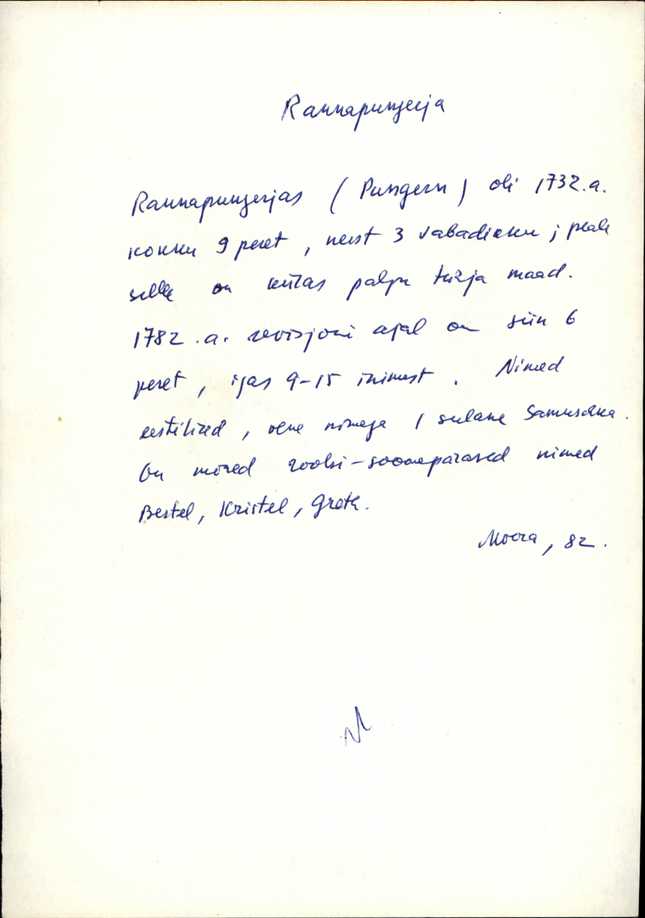 Rannapungerja
Rannapungerjas (Pungern) oli 1732.a.
kokku 9 peret, neist 3 vabadikku; peale
selle on külas palju tühja maad.
1782.a. revisjoni ajal on siin 6
peret, igas 9-15 inimest. Nimed
eestilised, vene nimega 1 sulane
On mõned rootsi-soomepärased nimed
Bestel, Kristel, Greta.
Moora, 82.